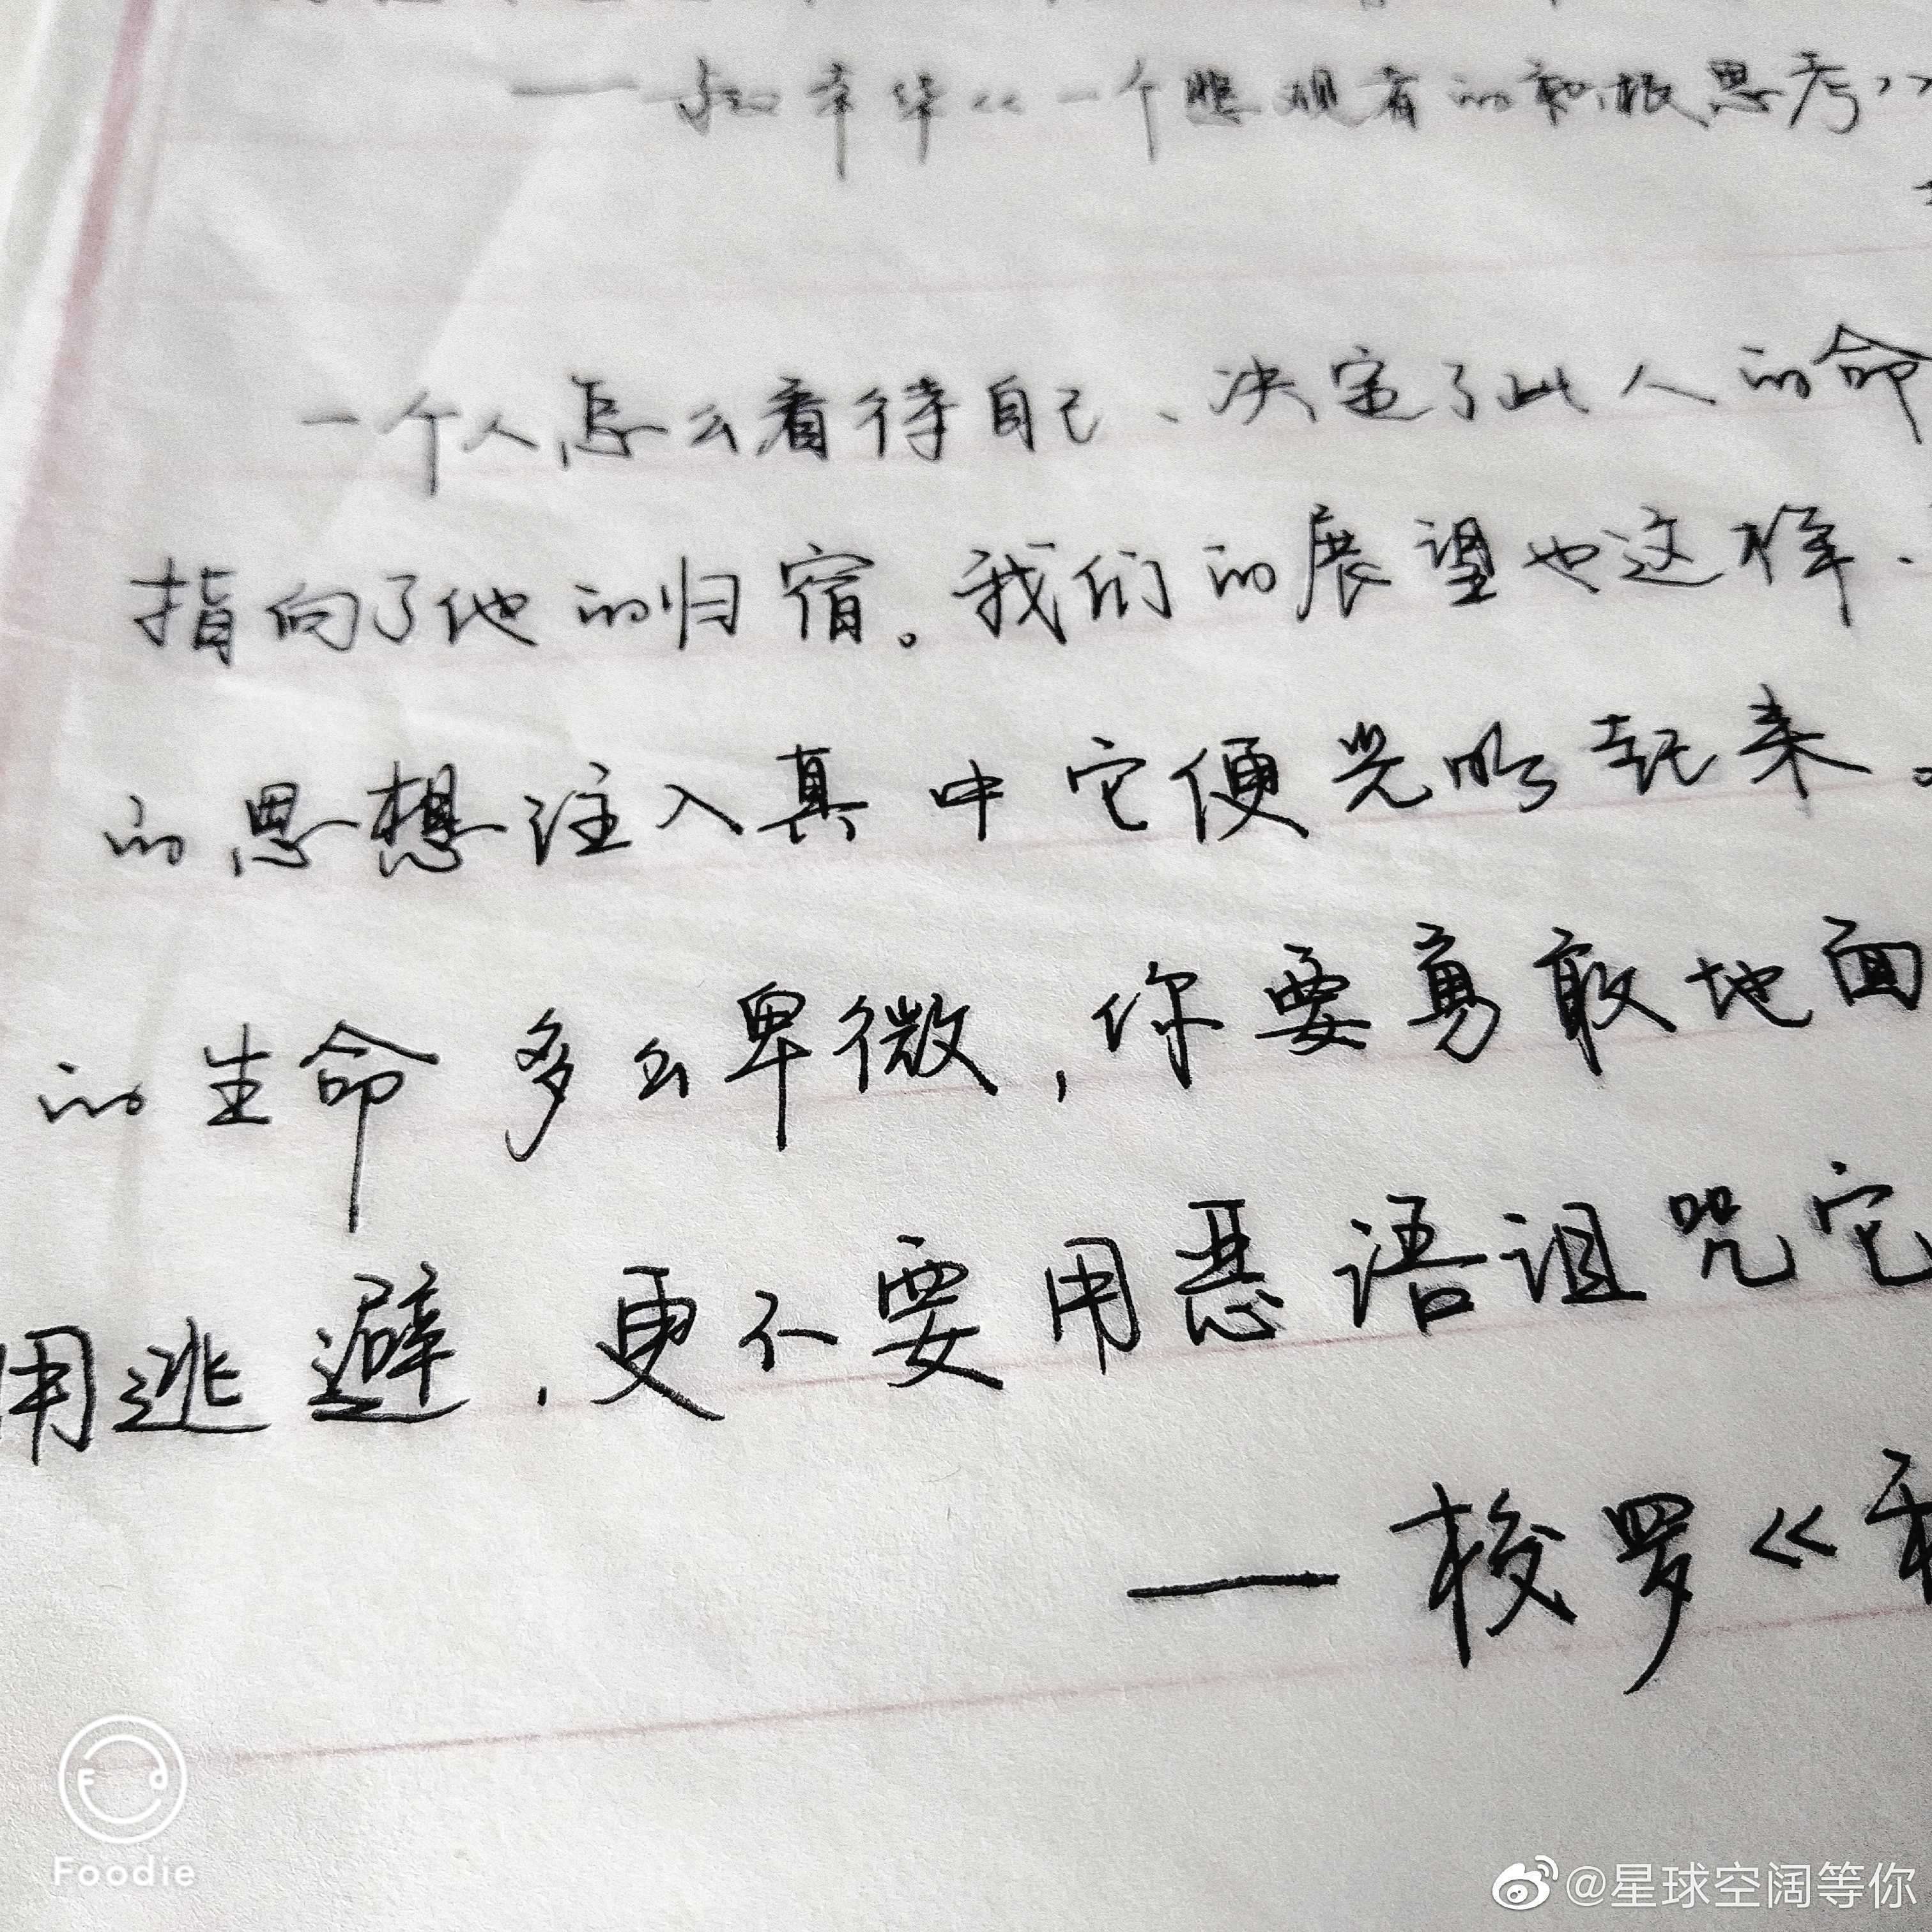 ——孙立平《一个悲观者的积极思考》
一个人怎么看待自己、决定了此人的命
指向了他的归宿。我们的展望也这样、
的思想注入其中它便光明起来。
的生命多么卑微,你要勇敢地面
用逃避,更不要用恶语诅咒它
——梭罗《
Foodie
@星球空阔等你